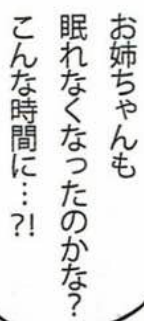 お姉ちゃんも
眠れなくなったのかな?
こんな時間に…?!